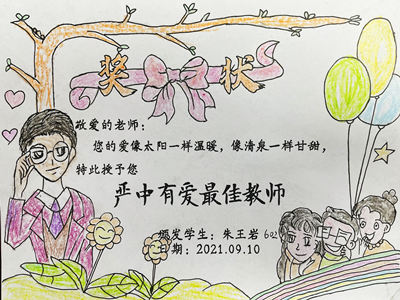 奖状
敬爱的老师：
您的爱像太阳一样温暖，像清泉一样甘甜，
特此授予您
严中有爱最佳教师
颁发学生：朱王岩 602
日期：2021.09.10